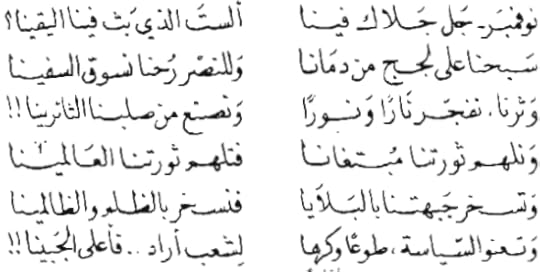 نوفمبر.. جل جلالك فينا ألستَ الذي بث فينا اليقينا؟
سبحنا على لجج من دمانا وللنصْر رُحنا نسوق السفينا
وثرنا. نفجر نارًا ونورًا ونصنع من صلبنا الثائرينا!!
ونلهم ثورتنا مبتغانا فتلهم ثورتنا العالمينا
وتسخر جبهتنا بالبلايا فنسخر بالظلم والظالمينا
وتعنو السّياسة، طوعًا وكرها لشعب أراد.. فأعلى الجبينا!!